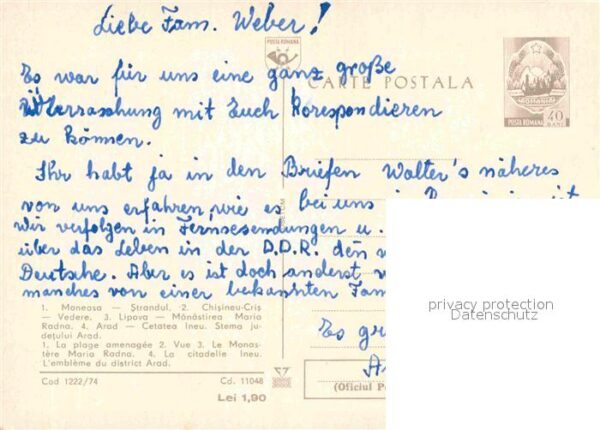 Liebe Fam. Weber!
POSTA ROMANA
Es war für uns eine ganz große
CARTE POSTALA
Überraschung mit Euch korespondieren
POSTA ROMANA 40 BANI
zu können.
Ihr habt ja in den Briefen Walter's näheres
von uns erfahren, wie es bei uns in
wir verfolgen in Fernsesendungen u.
über das Leben in der D.D.R. den
Deutsche. Aber es ist doch anderst
manches von einer bekannten Fam
Es
1. Moneasa — Ștrandul. 2. Chișineu-Criș
— Vedere. 3. Lipova — Mânăstirea Maria
Radna. 4. Arad — Cetatea Ineu. Stema ju-
dețului Arad.
1. La plage amenagée 2. Vue 3. Le Monas-
tère Maria Radna. 4. La citadelle Ineu.
L'emblème du district Arad.
Cod 1222/74 Cd. 11048
Lei 1,90
(Oficiul
privacy protection
Datenschutz